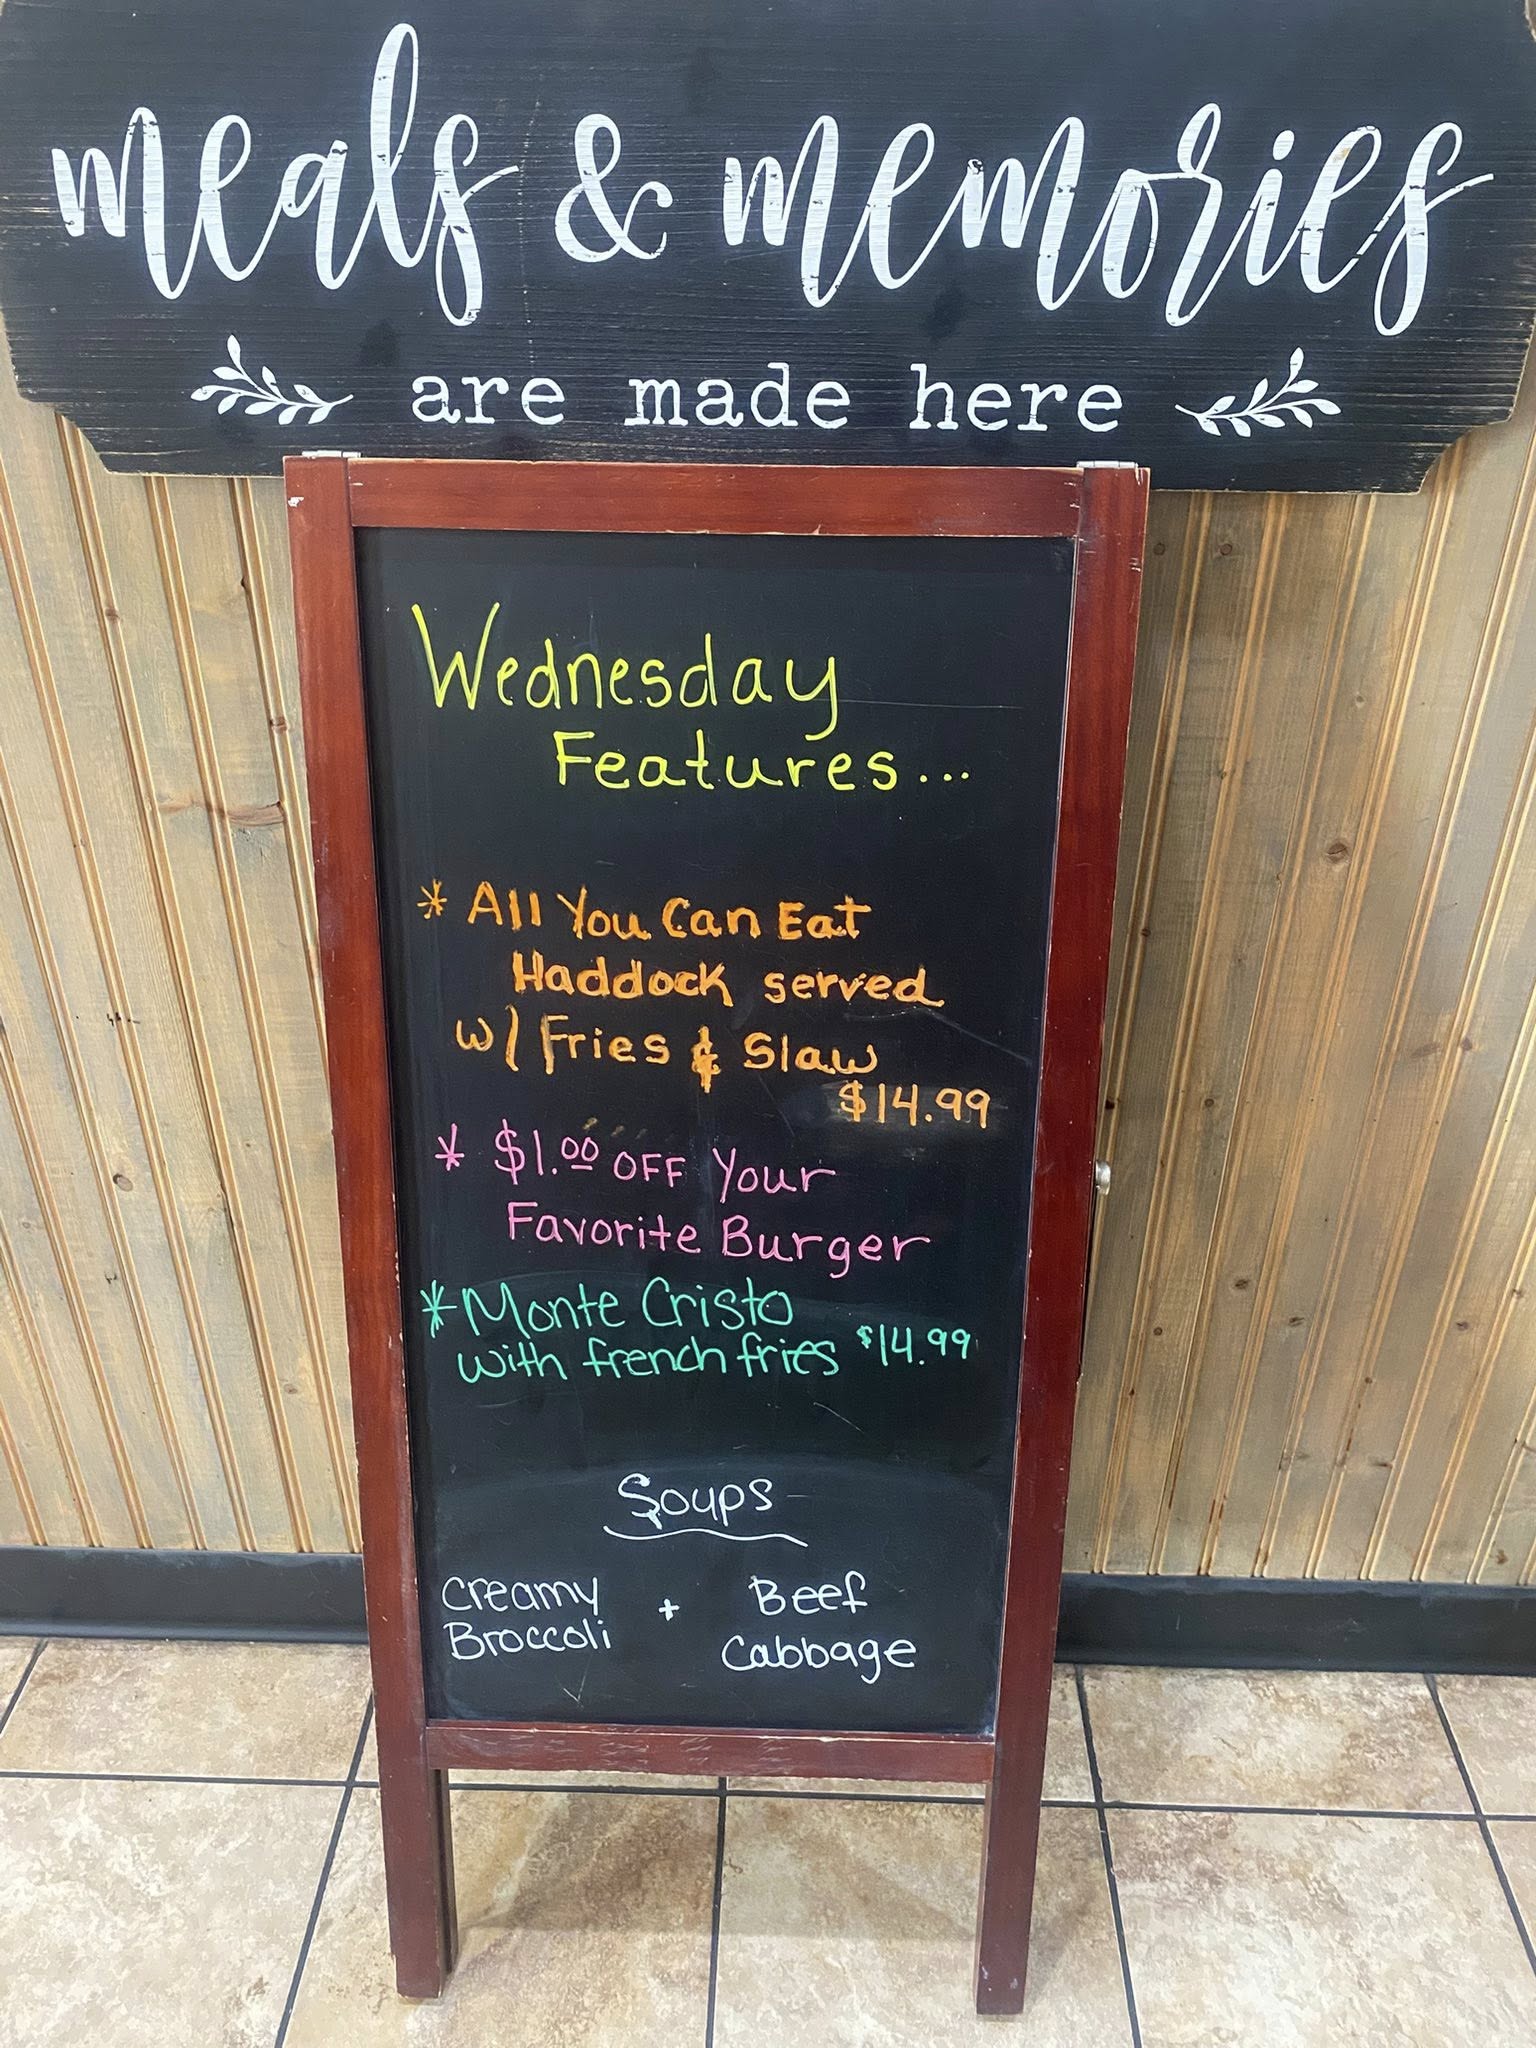 meals & memories
are made here
Wednesday
Features...
* All You Can Eat
Haddock served
w/ Fries & Slaw
$14.99
* $1.00 OFF Your
Favorite Burger
* Monte Cristo
with french fries $14.99
Soups
Creamy + Beef
Broccoli Cabbage